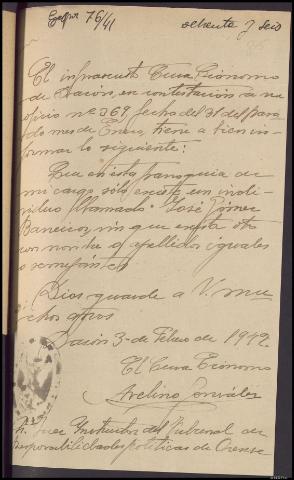 Expte 76/41
ochenta y seis
El infrascrito Cura Ecónomo
de Dacón, en contestación a su
oficio nº 269 fecha del 31 del pasa
do mes de Enero, tiene a bien in
formar lo siguiente:
Que en esta parroquia de
mi cargo sólo existe un indi-
viduo llamado José Gómez
sin que exista otro
con nombre y apellidos iguales
o semejantes
Dios guarde a V. mu
chos años
Dacón 3 de Febro de 1942.
El Cura Ecónomo
Avelino González
Sr. Juez Instructor del Tribunal de
Responsabilidades políticas de Orense.